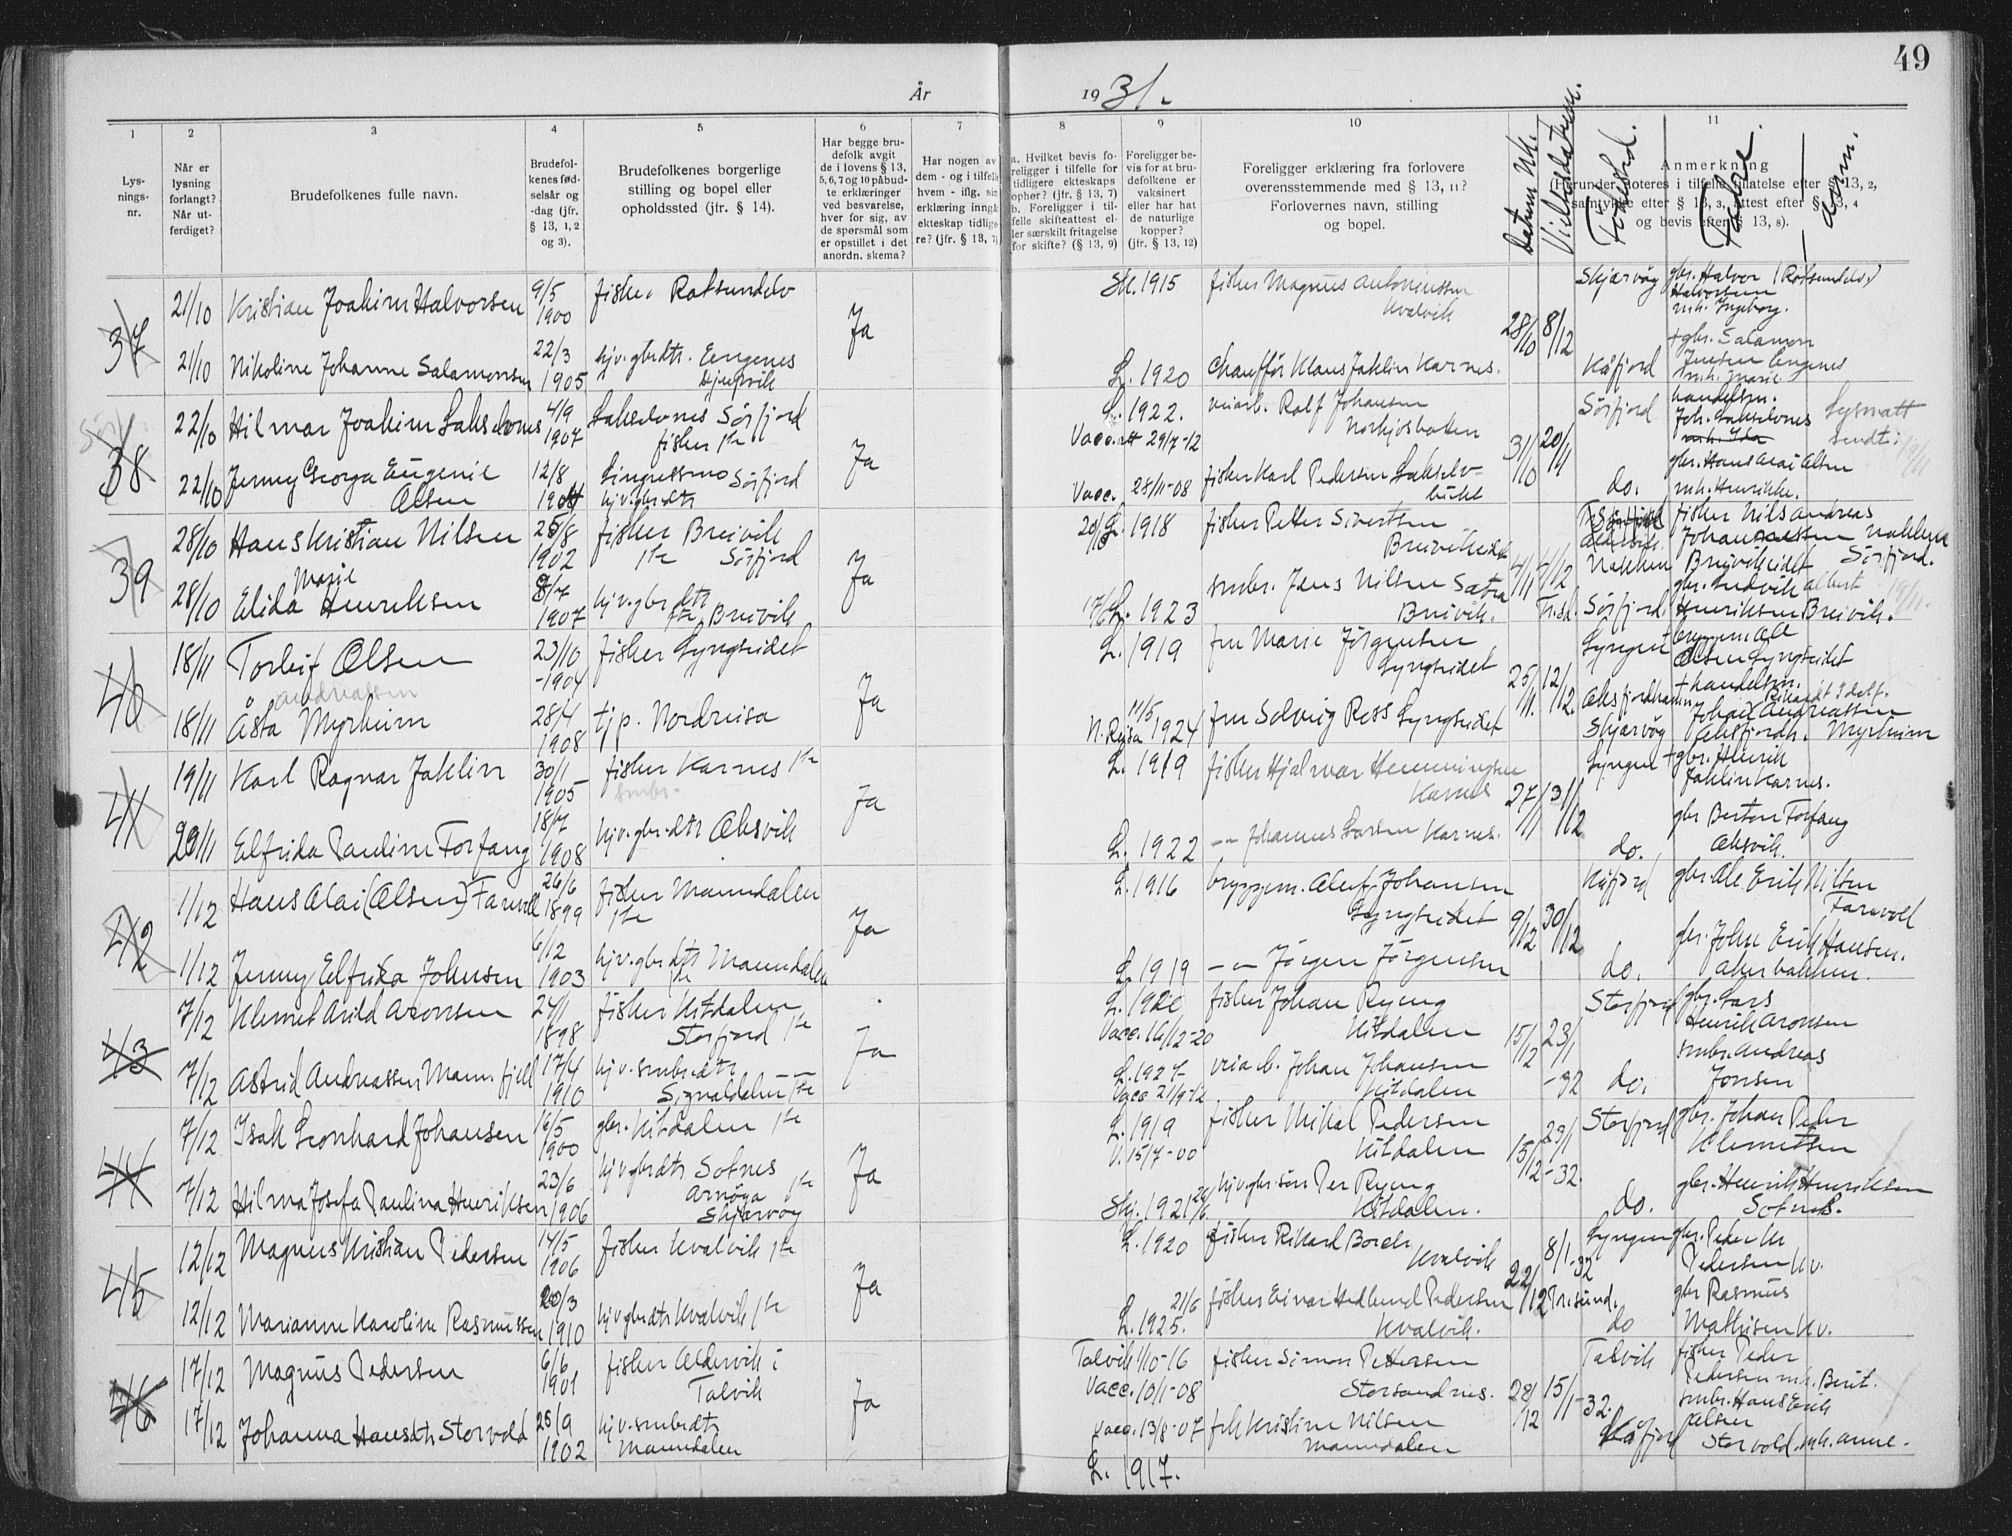 49
År
19 31.
1
2
3
4
5
6
7
8
9
10
11
Lys-
nings-
nr.
Når er
lysning
forlangt?
Når ut-
ferdiget?
Brudefolkenes fulle navn.
Brudefol-
kenes fød-
selsår og
-dag (jfr.
§ 13, 1, 2
og 3).
Brudefolkenes borgerlige
stilling og bopel eller
opholdssted (jfr. § 14).
Har begge bru-
defolk avgit
de i lovens § 13,
5, 6, 7 og 10 påbud-
te erklæringer
ved besvarelse,
hver for sig, av
de spørsmål som
er opstillet i det
anordn. skema?
Har nogen av
dem - og i tilfelle
hvem - iflg. sin
erklæring inngå
ekteskap tidlige-
re? (jfr. § 13, 7)
a. Hvilket bevis fo-
religger i tilfelle for
tidligere ekteskaps
ophør? (jfr. § 13, 7)
b. Foreligger i til-
felle skifteattest el-
ler særskilt fritagelse
for skifte? (§ 13, 9)
Foreligger be-
vis for at bru-
defolkene er
vaksinert
eller har hat
de naturlige
kopper?
(jfr. § 13, 12)
Foreligger erklæring fra forlovere
overensstemmende med § 13, 11?
Forlovernes navn, stilling
og bopel.
Datum lysn.
Vielsesdatum.
Fødested.
Anmerkning
Fædre.
Anm.
37
21/10 Kristian Joakim Halvorsen 9/5 1900 fisker Rotsundelv Ja Skj. 1915 fisker Magnus Antoniussen Kvalvik 28/10 8/12 Skjærvöy gbr. Halvor (Rotsundelv) Halvorsen m.h. Ingeborg.
21/10 Nikoline Johanne Salamonsen 22/3 1905 hjv. gbrdtr. Engenes Djupvik L. 1920 Chauffør Klaus Jaklin Karnes. Kåfjord + gbr. Salamon Jensen Engenes m.h. Marie
38
22/10 Hilmar Joakim Lakselvnes 4/9 1907 Lakselvnes Sörfjord fisker Ja L. 1922. Vacc.att 29/7-12 veiarb. Ralf Johansen Nordkjosbotten 31/10 20/11 Sörfjord handelsm. Joh. Lakselvnes m.h. Ida Lysnatt sendt
22/10 Jenny Georga Eugenie Olsen 12/8 Lingessmo Sörfjord hjv. gbrdtr Vacc. 28/11-08 fisker Karl Pedersen Lakselvbukt do. gbr. Hans Olai Olsen m.h. Henrikke.
39
28/10 Hans Kristian Nilsen 25/8 1902 fisker Breivik Sörfjord Ja L. 1918 fisker Petter Sivertsen Breivikeidet 4/11 4/12 Nakken fisker Nils Andreas Johannessen Nakken Breivikeidet Sörfjord.
28/10 Elida Marie Henriksen 8/7 1907 hjv. gbrdtr Breivik L. 1923 smbr. Jens Nilsen Breivik. Tr.sd. Sörfjord gbr. Ludvik Albert Henriksen Breivik.
40
18/11 Torleif Olsen 23/10 -1904 fisker Lyngseidet Ja L. 1919 fru Marie Jörgensen Lyngseidet 25/11. 12/12. Lyngen + bryggem. Ole Olsen Lyngseidet
18/11 Åsta Andreassen Myrheim 28/4 1908 tjp. Nordreisa N. Reisa 11/5 1924 fru Solveig Ross Lyngseidet Oksfjordhamn Skjærvöy + handelsm. Johan Andreassen Oksfjordh. Myrheim
41
19/11 Karl Ragnar Jaklin 30/1 1905 fisker Karnes smbr. Ja L. 1919 fisker Hjalmar Henningsen Karnes 27/11 31/12 Lyngen + gbr. Henrik Jaklin Karnes.
20/11 Elfrida Pauline Forfang 18/7 1908 hjv. gbr.dtr Oksvik L. 1922 -"- Johannes Larsen Karnes. do. gbr Berton Forfang Oksvik.
42
1/12 Hans Olai (Olsen) Farvoll 26/6 1899 fisker Manndalen Ja L. 1916 bryggem. Oluf Johansen Lyngseidet 9/12 30/12 Kåfjord gbr. Ole Erik Nilsen Farvoll
1/12 Jenny Elfrida Johnsen 6/12 1903 hjv. gbrdtr Manndalen L. 1919 -"- Jörgen Jörgensen do. gbr. John Erik Hansen. Akerbakken.
43
7/12 Klemet Arild Aronsen 24/1 1898 fisker Kitdalen Storfjord Ja L. 1920 Vacc. 16/12-20 fisker Johan Ryeng Kitdalen 15/12 23/1 -32 Storfjord gbr. Lars Henrik Aronsen
7/12 Astrid Andreassen Mannfjell 17/4 1910 hjv. smbr.dtr Signaldalen L. 1927 Vacc 21/9-12 veiarb. Johan Johansen Kitdalen do. smbr. Andreas Jonsen
44
7/12 Isak Leonhard Johansen 16/5 1900 gbr. Kitdalen Ja L. 1919 V. 15/7-00 fisker Mikal Pedersen Kitdalen 15/12 23/1 -32. Storfjord gbr. Johan Peder Klemetsen
7/12 Hilma Josefa Paulina Henriksen 23/6 1906 hjv gbrdtr Sotnes Arnöya Skjærvöy Skj. 1921 hjv. gbr. sön Per Ryeng Kitdalen. do. gbr. Henrik Henriksen Sotnes.
45
12/12 Magnus Kristian Pedersen 14/5 1906 fisker Kvalvik Ja L. 1920 fisker Rikard Borch Kvalvik 22/12 8/1-32 Lyngen gbr. Peder Kr Pedersen Kv.
12/12 Marianne Karoline Rasmussen 20/3 1910 hjv gbrdtr Kvalvik 21/6 L. 1925. fisker Einar Hedlund Pedersen Kvalvik. Tr.sund. do gbr Rasmus Mathisen Kv.
46
17/12 Magnus Pedersen 6/6 1901 fisker Oldervik i Talvik Ja Talvik 1/10-16 Vacc. 10/1-08 fisker Simon Pettersen Storsandnes. 28/12 15/1-32. Talvik fisker Peder Pedersen m.h. Berit.
17/12 Johanna Hansdtr Storvold 25/9 1902 hjv. smbrdtr Manndalen Vacc. 13/8-07 L. 1917. frk Kristine Nilsen Manndalen Kåfjord smbr. Hans Erik Olsen Storvold. m.h. Anne.